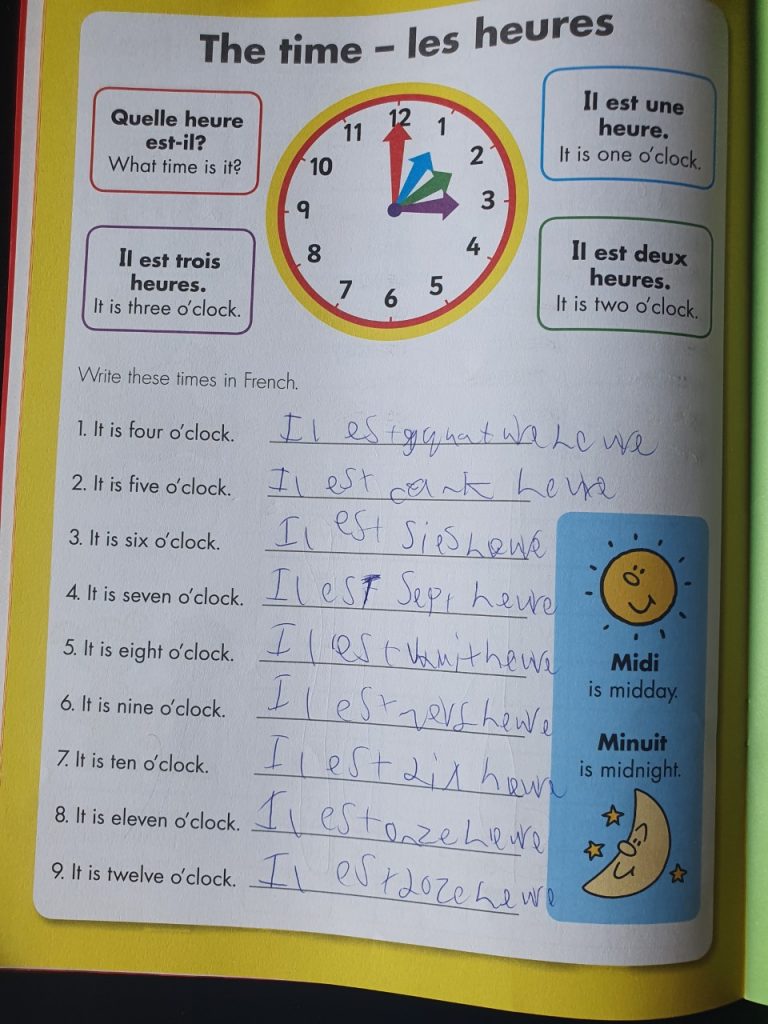 The time – les heures
Quelle heure
est-il?
What time is it?
Il est une
heure.
It is one o'clock.
11
12
1
10
2
9
3
8
4
7
6
5
Il est trois
heures.
It is three o'clock.
Il est deux
heures.
It is two o'clock.
Write these times in French.
1. It is four o'clock. Il est heure
2. It is five o'clock. Il est heure
3. It is six o'clock. Il est sies heure
4. It is seven o'clock. Il est sept heure
5. It is eight o'clock. Il est heure
6. It is nine o'clock. Il est heure
7. It is ten o'clock. Il est dix heure
8. It is eleven o'clock. Il est onze heure
9. It is twelve o'clock. Il est doze heure
Midi
is midday.
Minuit
is midnight.